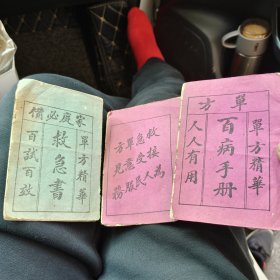 家庭必備
單方精華
救急書
百試百效
救急單方
接受意見
為人民服務
單方
單方精華
百病手册
人人有用